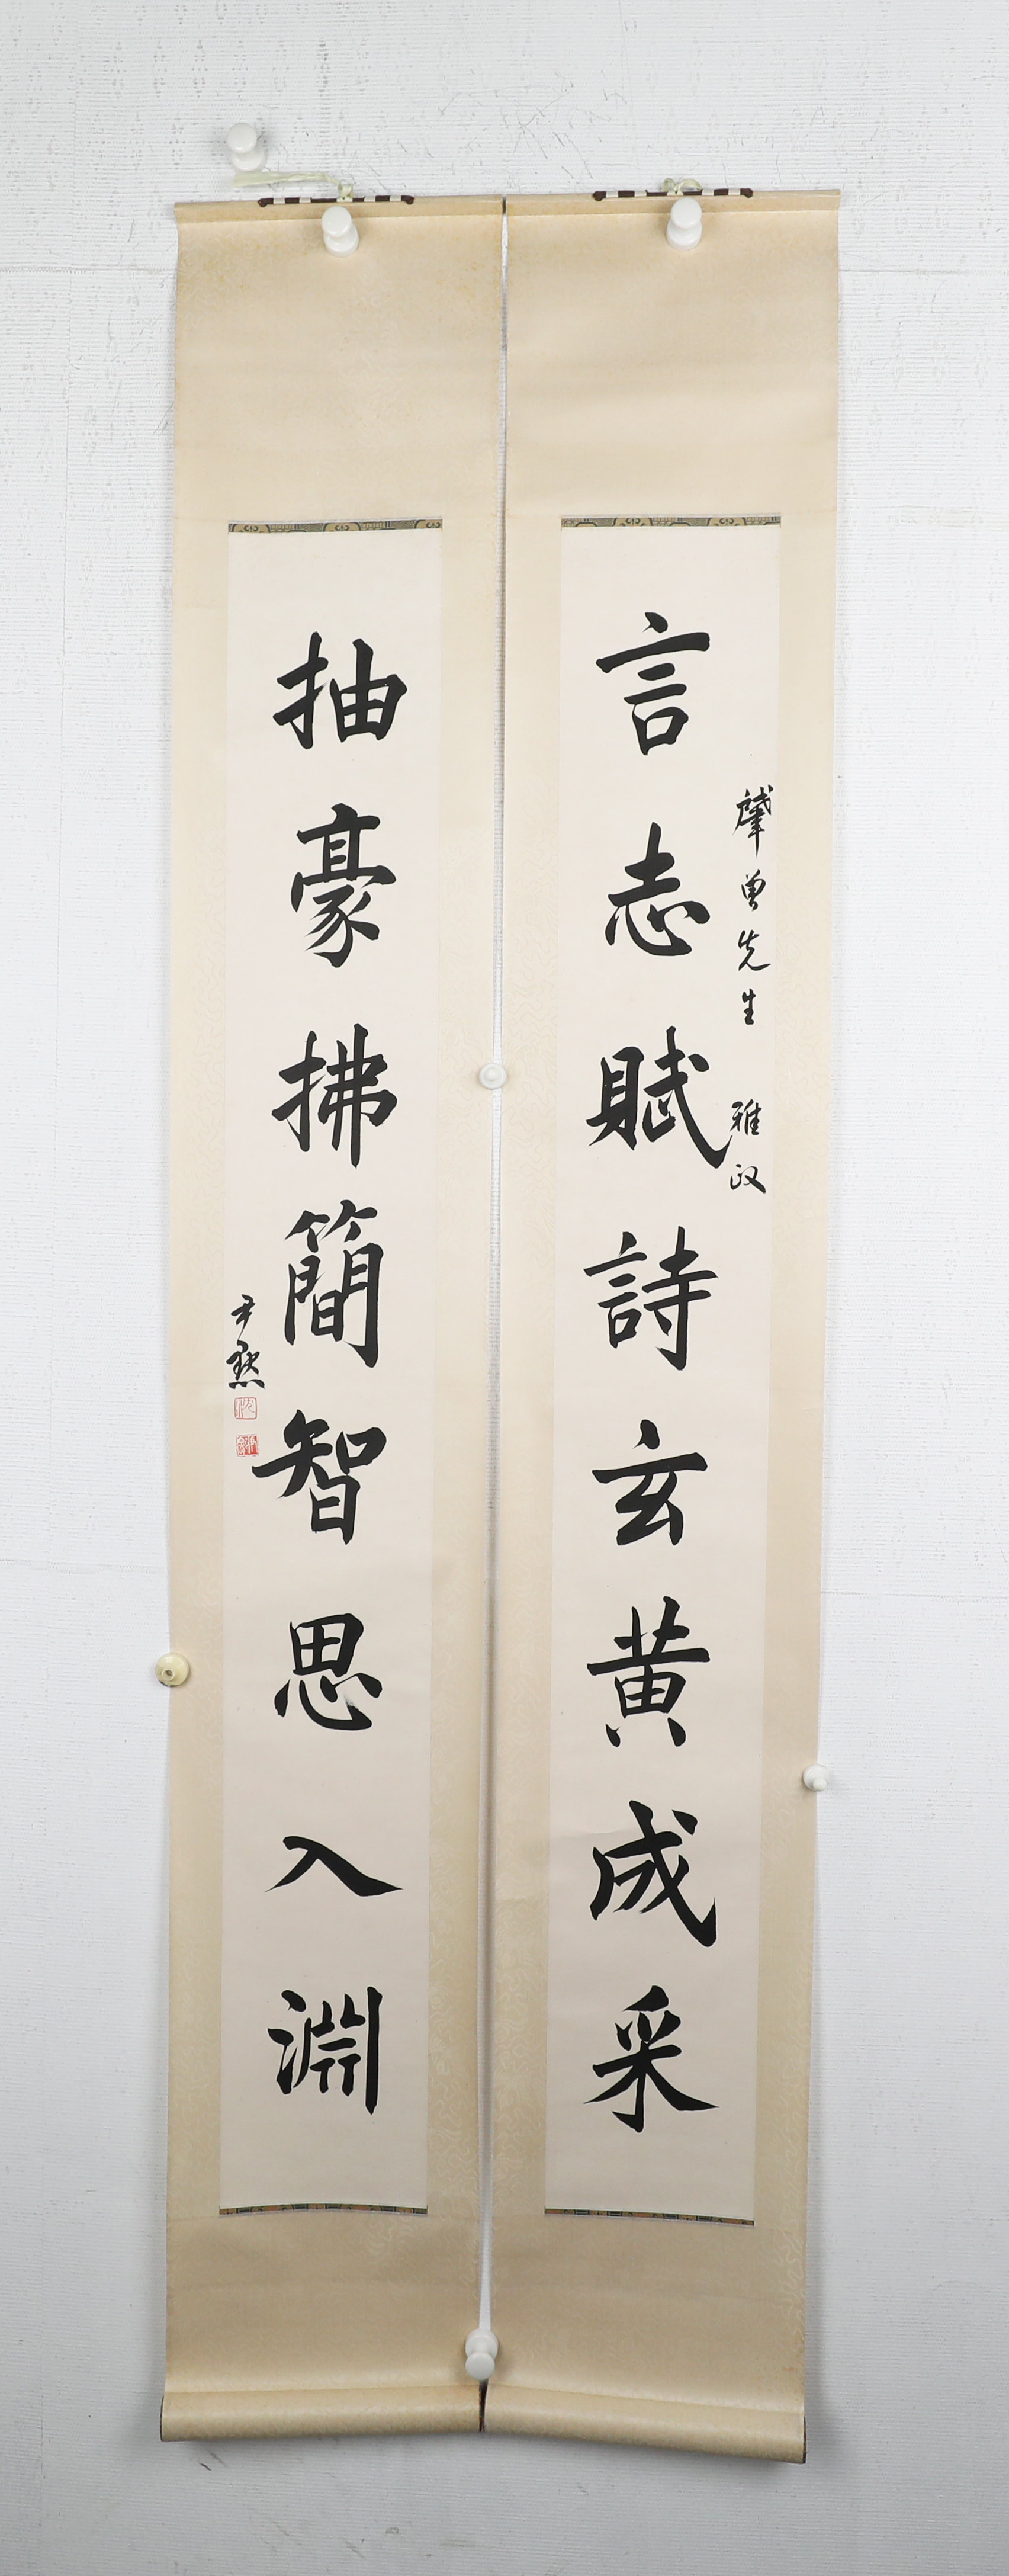 言志賦詩玄黄成采
肇曾先生 雅政
抽豪拂簡智思入淵
尹默